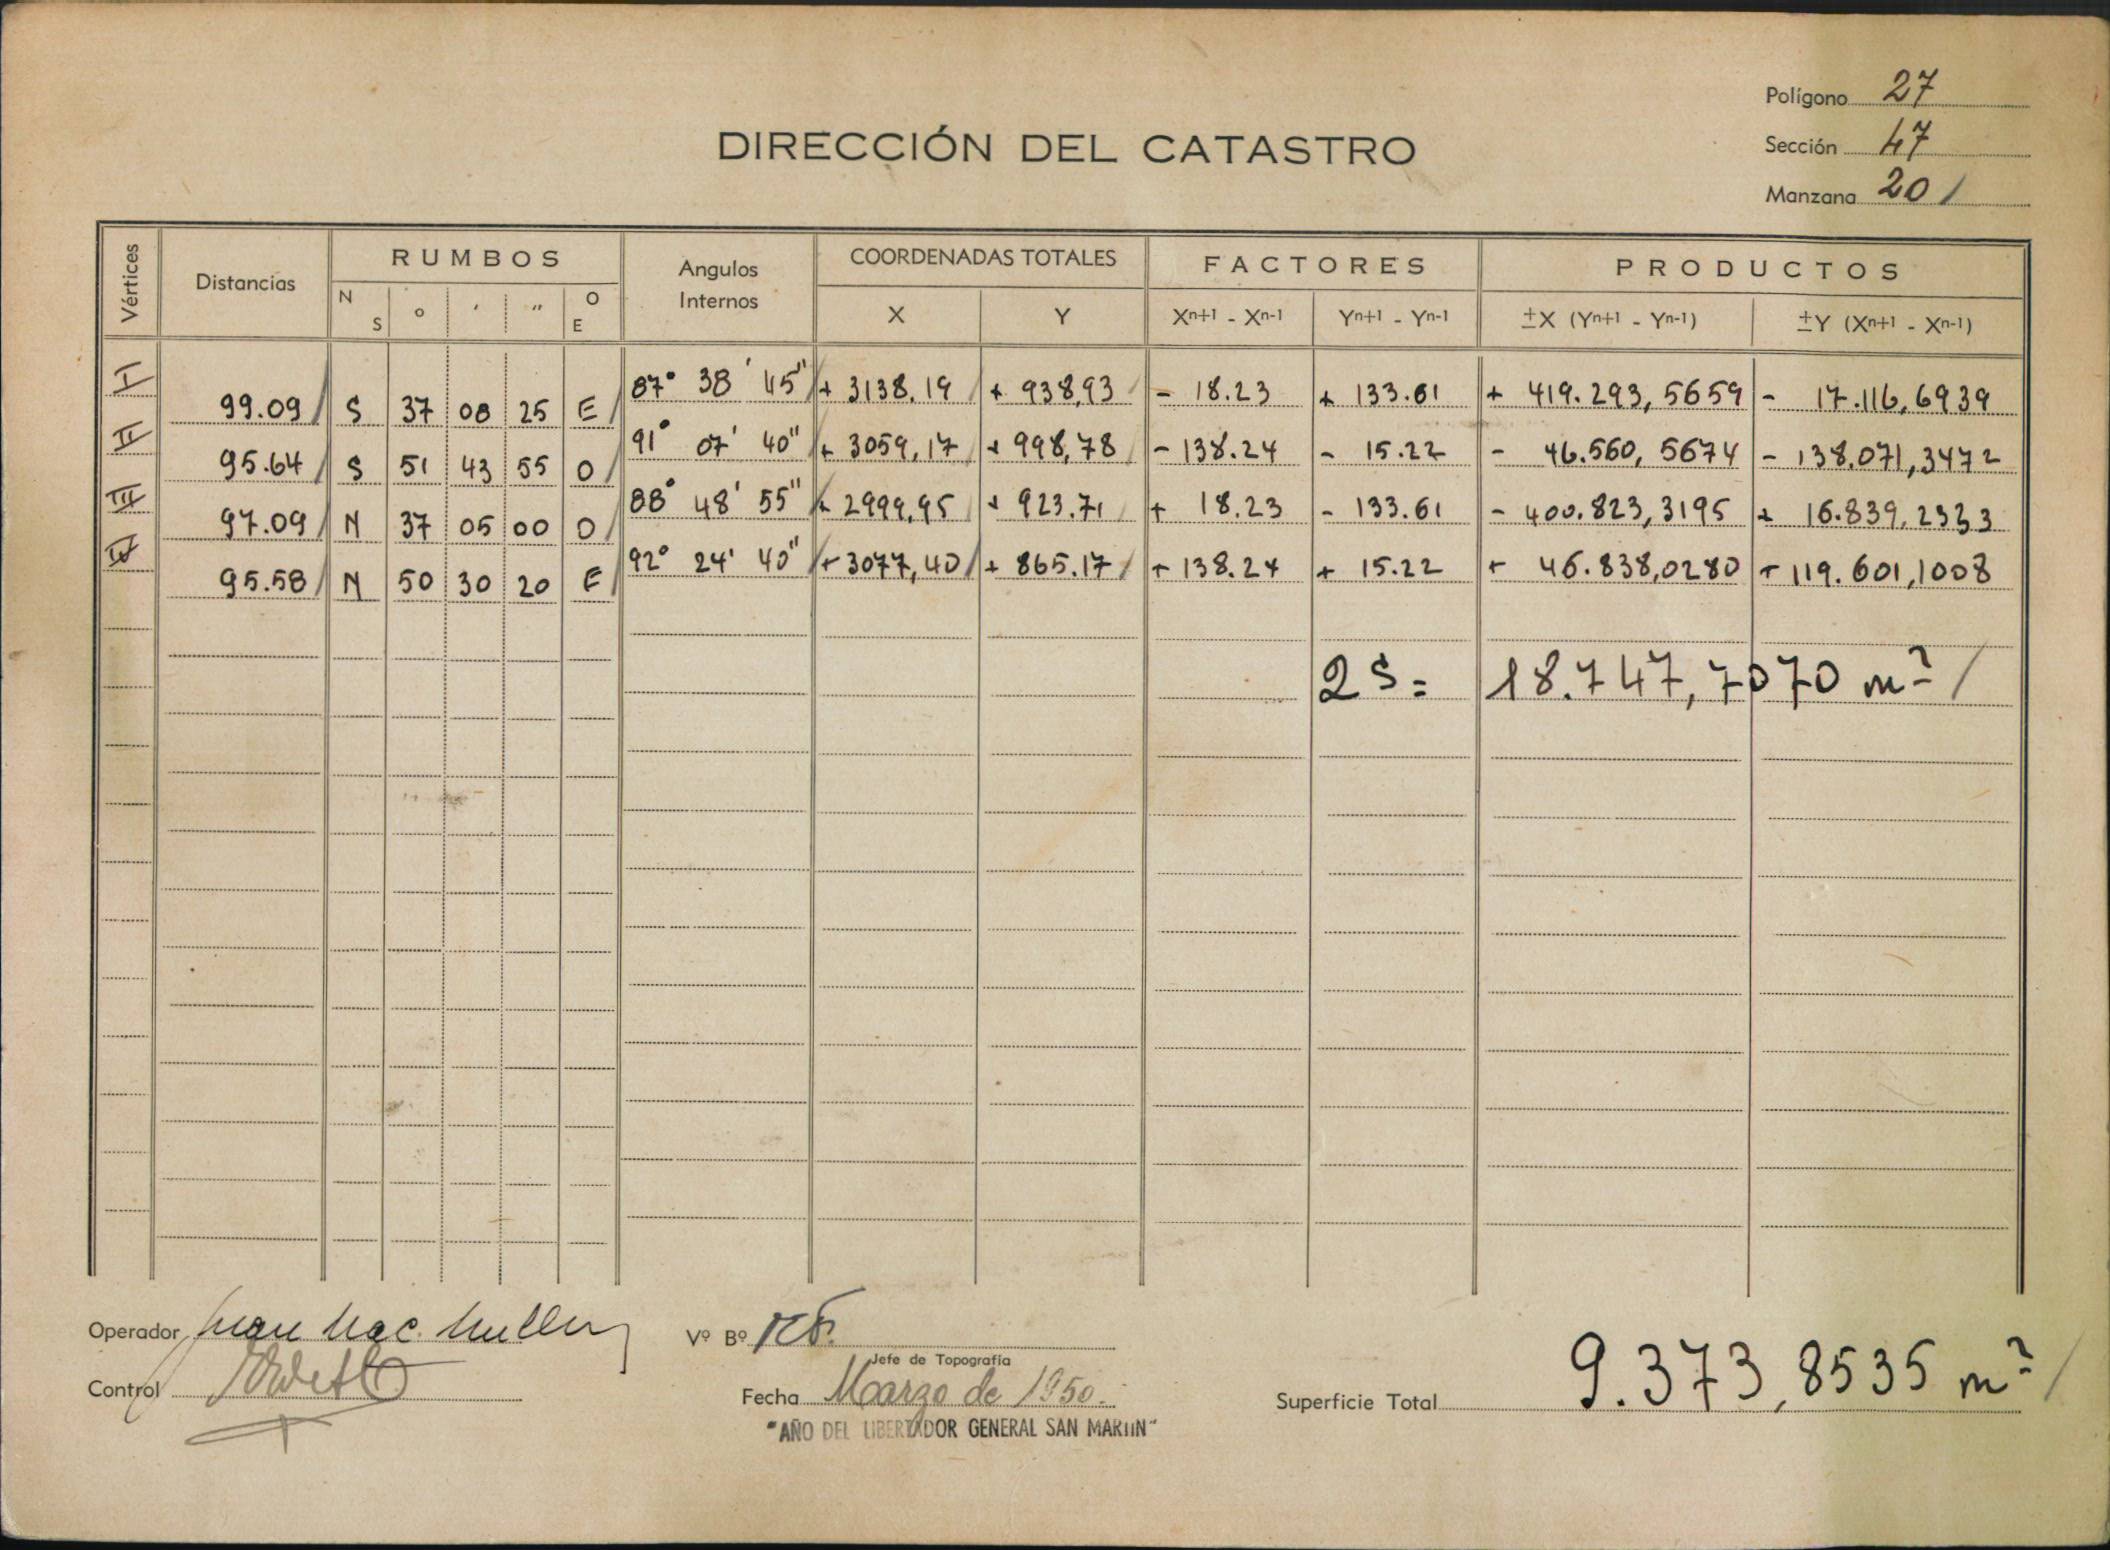 Polígono 27
DIRECCIÓN DEL CATASTRO
Sección 47
Manzana 20 /
Vértices Distancias RUMBOS Angulos Internos COORDENADAS TOTALES FACTORES PRODUCTOS
N S ° ′ ″ O E X Y Xn+1 - Xn-1 Yn+1 - Yn-1 ±X (Yn+1 - Yn-1) ±Y (Xn+1 - Xn-1)
I 99.09 / S 37 08 25 E / 87° 38' 45" / + 3138,19 / + 938,93 / - 18.23 + 133.61 + 419.293,5659 - 17.116,6939
II 95.64 / S 51 43 55 O / 91° 07' 40" / + 3059,17 / + 998,78 / - 138.24 - 15.22 - 46.560,5674 - 138.071,3472
III 97.09 / N 37 05 00 O / 88° 48' 55" / + 2999,95 / + 923.71 / + 18.23 - 133.61 - 400.823,3195 + 16.839,2333
IV 95.58 / N 50 30 20 E / 92° 24' 40" / + 3077,40 / + 865.17 / + 138.24 + 15.22 + 46.838,0280 + 119.601,1008
2 S = 18.747,7070 m² /
Operador Juan Mac. Vº Bº
Jefe de Topografía
Control Fecha Marzo de 1950. Superficie Total 9.373,8535 m² /
"AÑO DEL LIBERTADOR GENERAL SAN MARTIN"